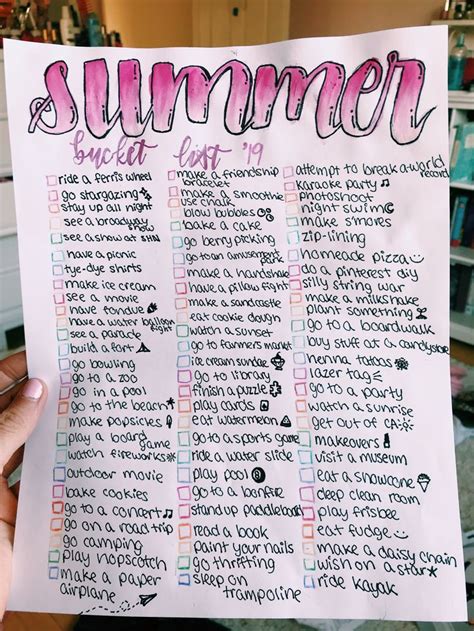 summer
bucket list '19
ride a ferris wheel
go stargazing
stay up all night
see a broadway show
see a show at SHN
have a picnic
tye-dye shirts
make ice cream
see a movie
have fondue
have a water balloon fight
see a parade
build a fort
go bowling
go to a zoo
go in a pool
go to the beach
make popsicles
play a board game
watch fireworks
outdoor movie
bake cookies
go to a concert
go on a road trip
go camping
play hopscotch
make a paper airplane
make a friendship bracelet
make a smoothie
use chalk
blow bubbles
bake a cake
go berry picking
go to an amusement park
make a handshake
have a pillow fight
make a sandcastle
eat cookie dough
watch a sunset
go to farmers market
ice cream sundae
go to library
finish a puzzle
play cards
eat watermelon
go to a sports game
ride a water slide
play pool
go to a bonfire
stand up paddleboard
read a book
paint your nails
go thrifting
sleep on trampoline
attempt to break a world record
karaoke party
photoshoot
night swim
make s'mores
zip-lining
homeade pizza
do a pinterest diy
silly string war
make a milkshake
plant something
go to a boardwalk
buy stuff at a candystore
henna tatoos
lazer tag
go to a party
watch a sunrise
get out of CA
makeovers
visit a museum
eat a snowcone
deep clean room
play frisbee
eat fudge
make a daisy chain
wish on a star
ride kayak